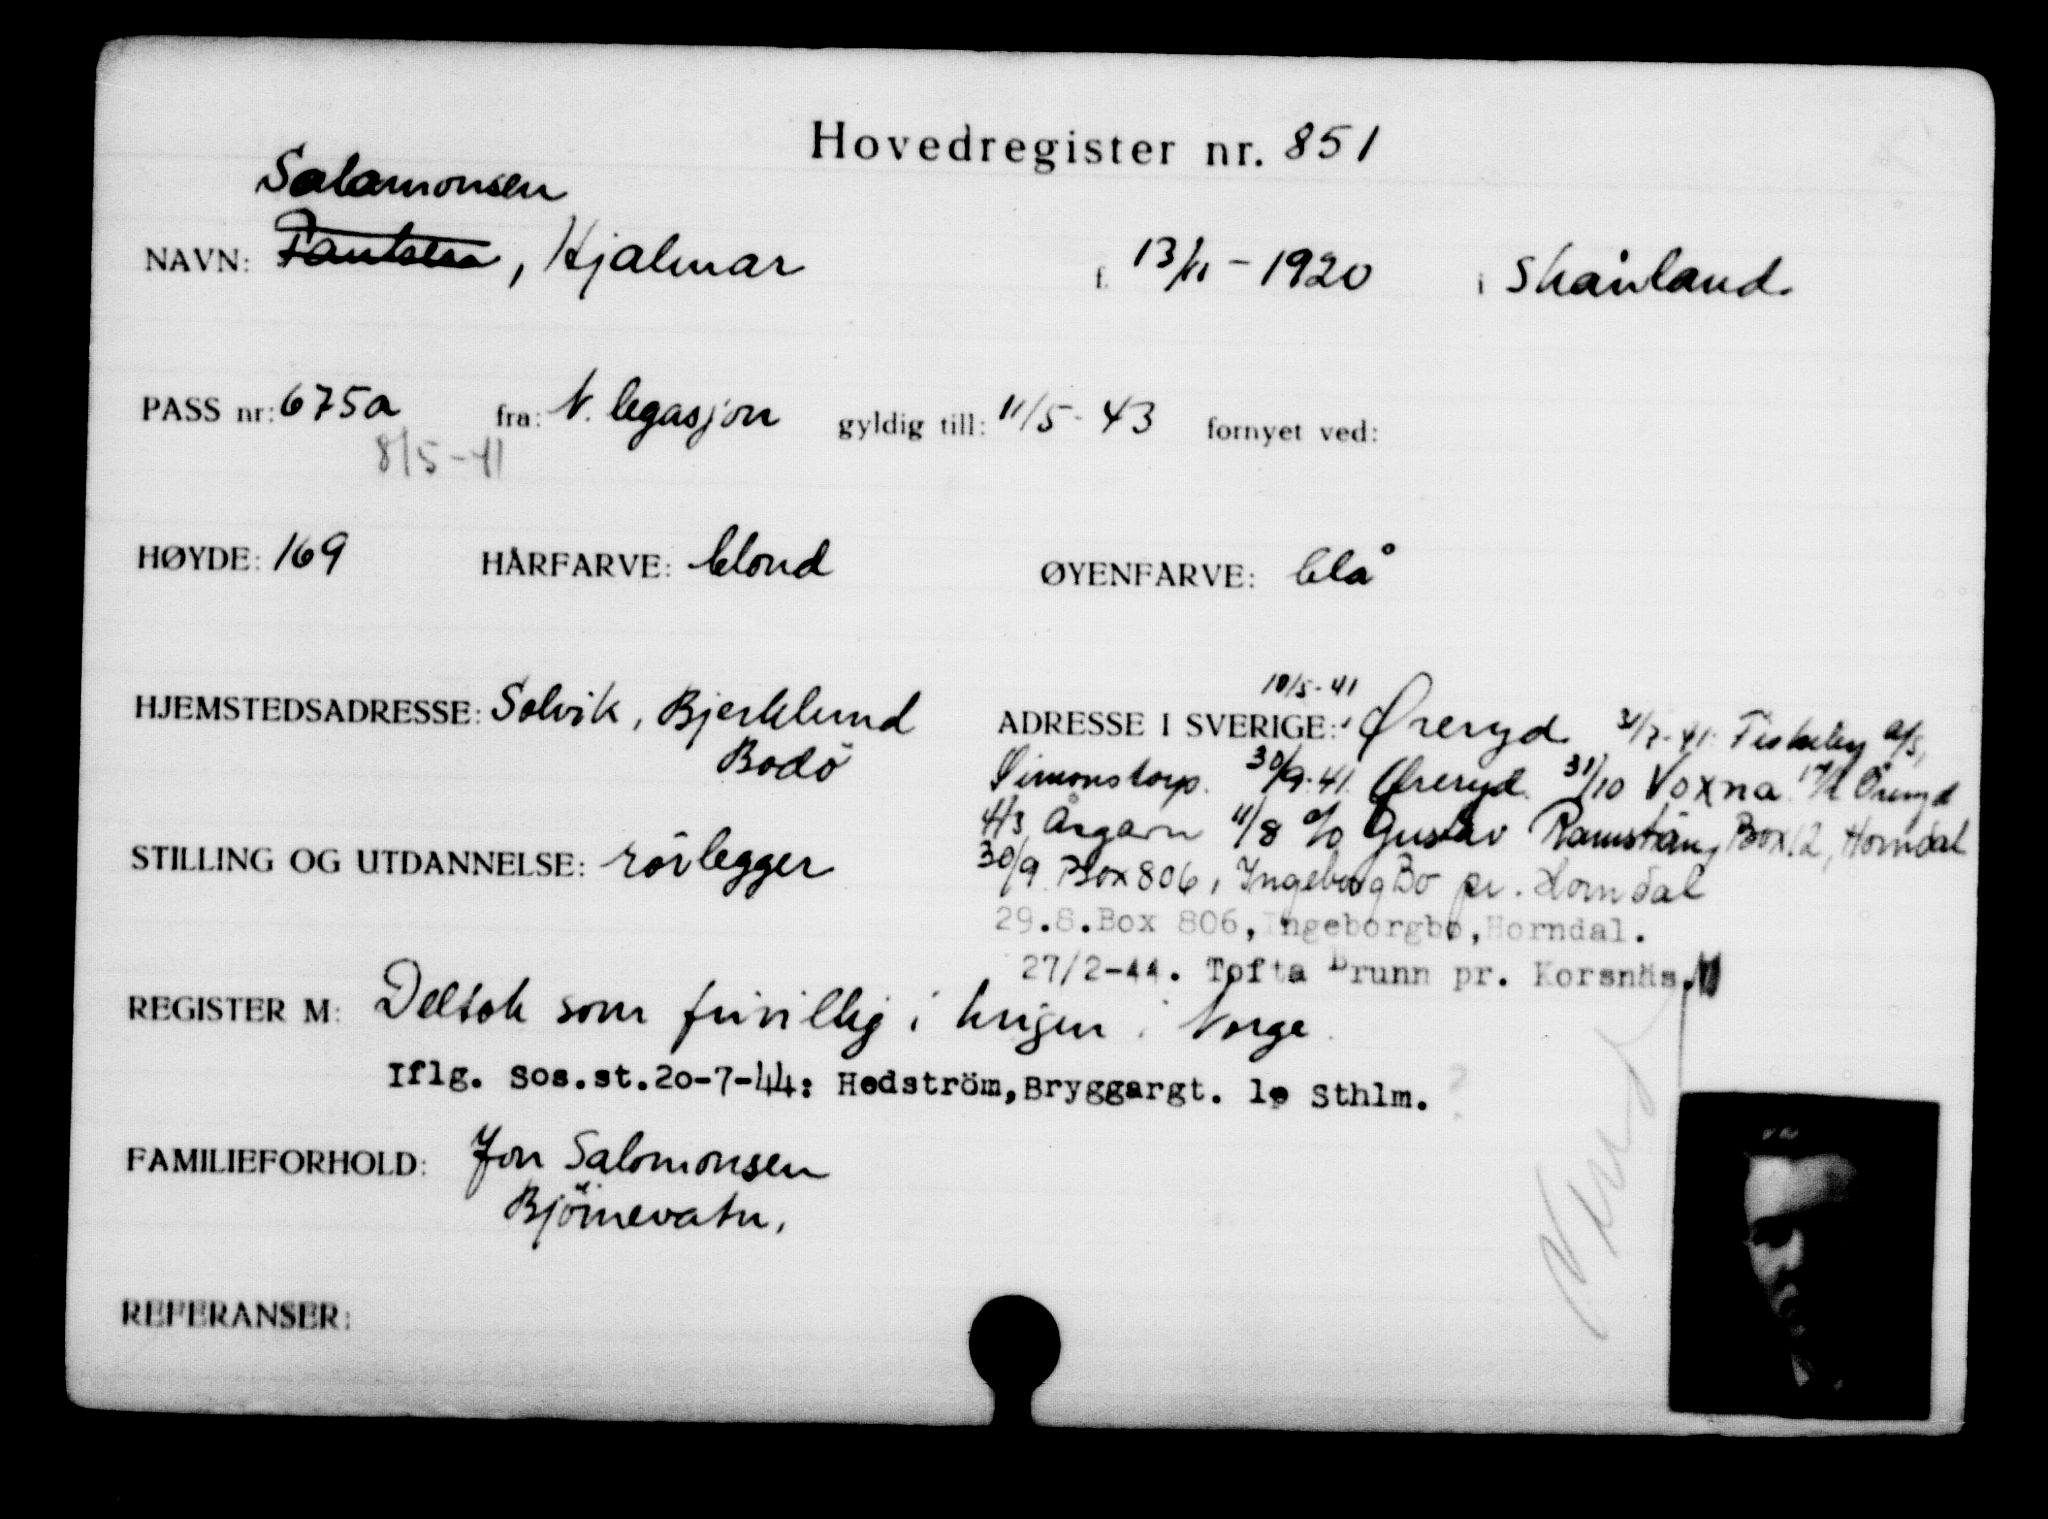 Hovedregister nr. 851
Salamonsen
NAVN: Paulsen, Hjalmar f. 13/11 - 1920 i Skånland
PASS nr: 675a fra: N. legasjon gyldig till: 11/5 - 43 fornyet ved:
8/5 - 41
HØYDE: 169 HÅRFARVE: blond ØYENFARVE: blå
10/5 - 41
HJEMSTEDSADRESSE: Solvik, Bjerklund ADRESSE I SVERIGE: Øreryd 31/7-41 Fiskeby a/s,
Bodö Simonstorp. 30/9-41. Øreryd. 31/10 Voxna. Öreryd
4/3 Årgarn 11/8 c/o Gustav Ramstäng Box 12, Horndal
STILLING OG UTDANNELSE: rörlegger 30/9. Box 806, IngeborgBo pr. Horndal
29.8. Box 806, Ingeborgbo, Horndal.
27/2-44. Tofta Brunn pr. Korsnäs.
REGISTER M: Deltok som frivillig i krigen i Norge.
Iflg. Sos.st. 20-7-44: Hedström, Bryggargt. 1o Sthlm. ?
FAMILIEFORHOLD: Jon Salomonsen
Björnevatn,
REFERANSER: